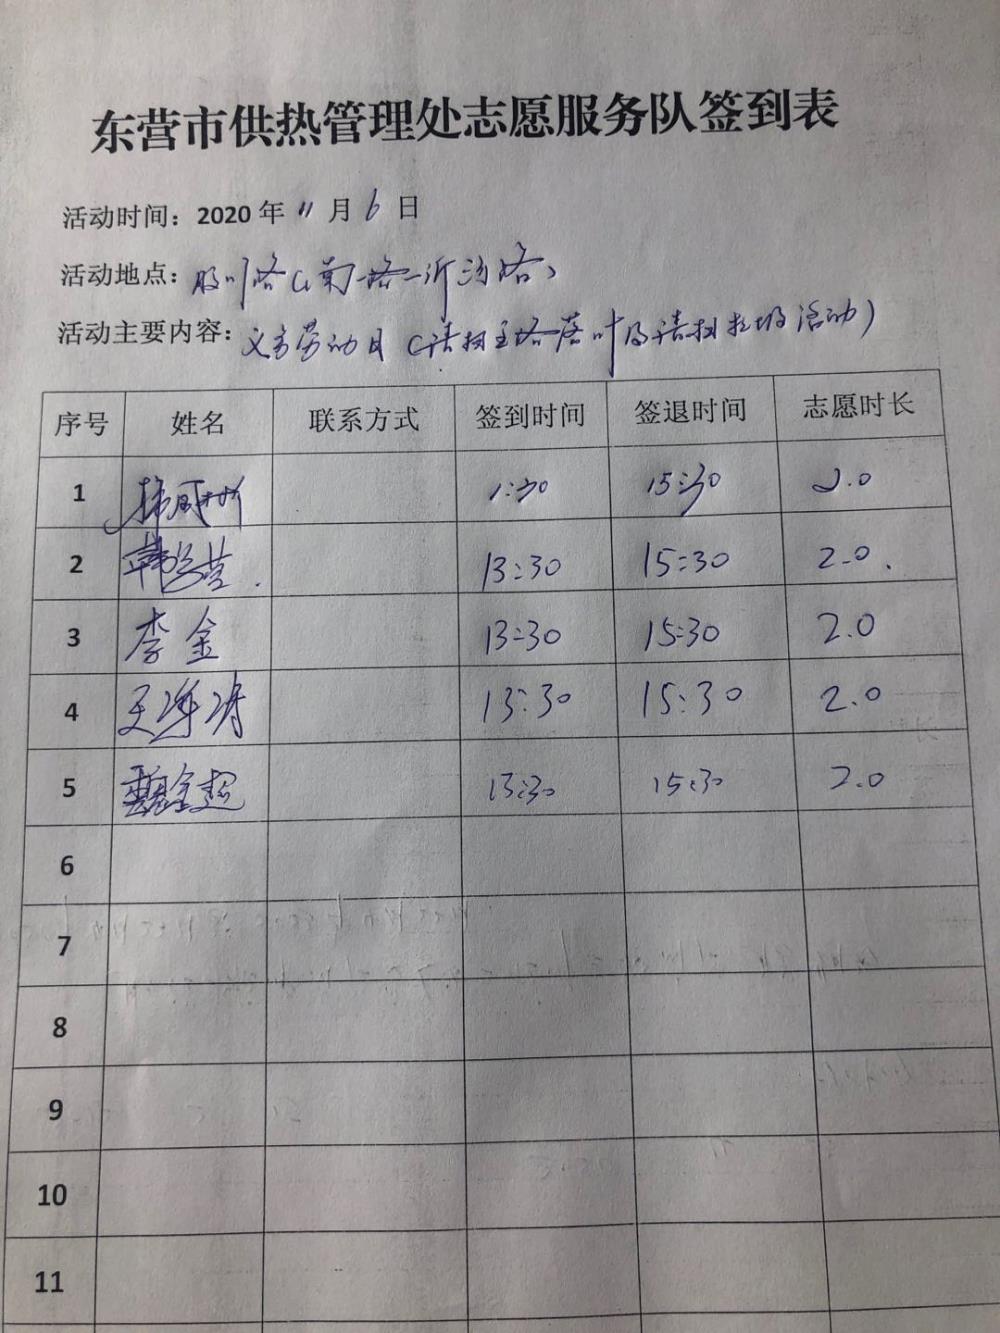 东营市供热管理处志愿服务队签到表
活动时间：2020 年 11 月 6 日
活动地点：胶州路（南一路—沂河路）
活动主要内容：义务劳动日（清扫主路落叶及清扫垃圾活动）
序号 姓名 联系方式 签到时间 签退时间 志愿时长
1 1:30 15:30 2.0
2 13:30 15:30 2.0.
3 李金 13:30 15:30 2.0
4 13:30 15:30 2.0
5 魏金超 13:30 15:30 2.0
6
7
8
9
10
11